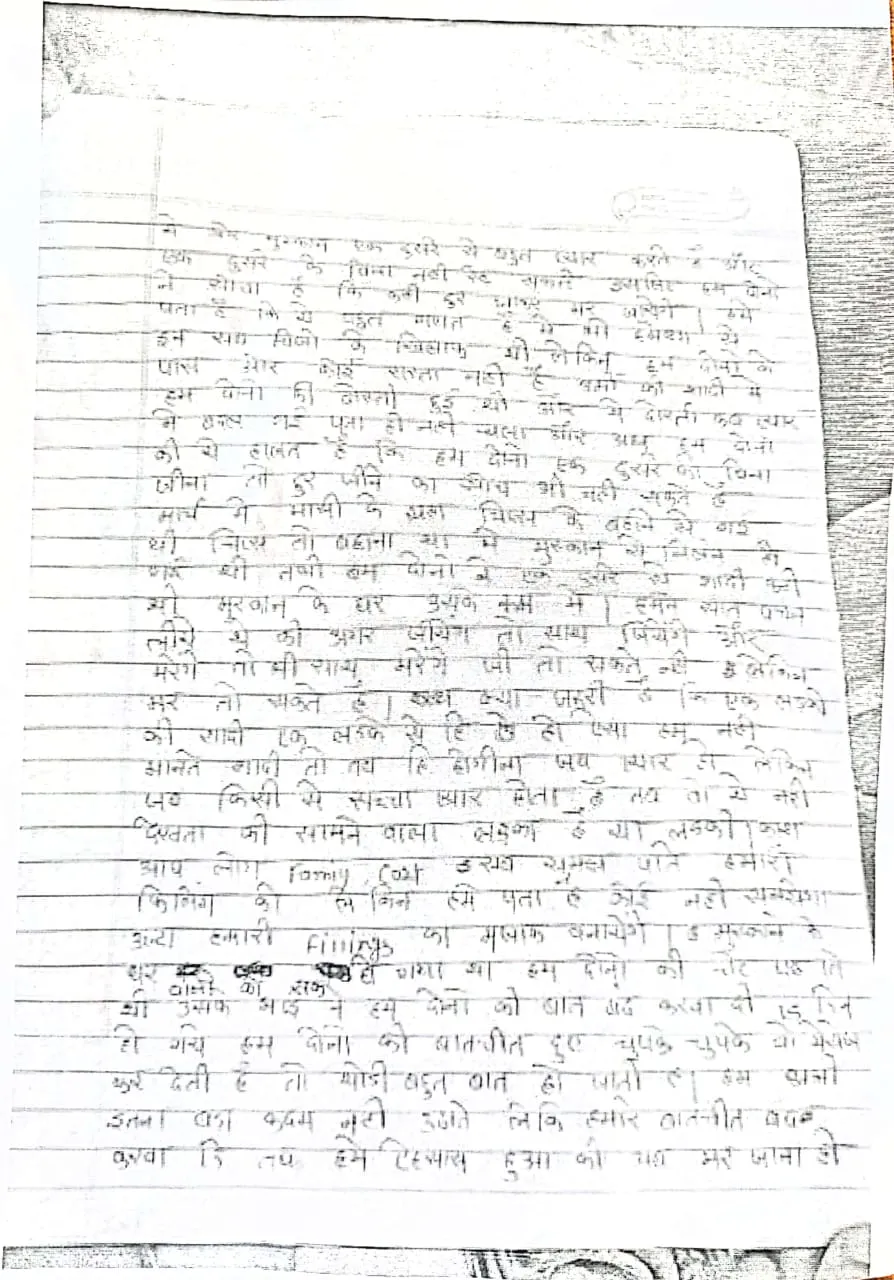 मे और मुस्कान एक दुसरे से बहुत प्यार करते है और
एक दुसरे के बिना नही रह सकते इसलिए हम दोनो
ने सोचा है कि कही दुर जाकर मर जायेगे | हमे
पता है कि ये बहुत गलत है मे भी हमेशा से
इन सब चिजो के खिलाफ थी लेकिन हम दोनो के
पास और कोई रास्ता नही है की शादी मे
हम दोनो की दोस्ती हुई थी और ये दोस्ती कब प्यार
मे बदल गई पता ही नही चला और अब हम दोनो
की ये हालत है कि हम दोनो एक दुसरे के बिना
जीना तो दुर जीने का सोच भी नही सकते है
मार्च मे मामी के घर चिप्स के बहाने से गई
थी चिप्स तो बहाना था मे मुस्कान से मिलने से
गई थी तभी हम दोनो ने एक दुसरे से शादी करी
थी मुस्कान के घर उसके रूम मे | हमने सात वचन
लीये थे की अगर जीयेंगे तो साथ जियेंगे और
मरेंगे तो भी साथ मरेंगे जी तो सकते नही लेकिन
मर तो सकते है | क्या जरूरी है कि एक लडकी
की शादी एक लडके से हि हो एसा हम नही
मानते शादी तो तब हि होगीना जब प्यार हो लेकिन
जब किसी से सच्चा प्यार होता है तब तो ये नही
देखता की सामने वाला लडका है या लडकी | काश
आप लोग Family Cast इ सब समझ पाते हमारी
फिलिंग को लेकिन हमे पता है कोई नही समझेगा
उल्टा हमारी Fillings का मजाक बनायेंगे | मुस्कान के
घर गया था हम दोनो की
दोनो की
थी उसके भाई ने हम दोनो की बात बंद करवा दी 15 दिन
हो गये हम दोनो को बातचीत हुए चुपके चुपके से मेसेज
कर देती है तो थोडी बहुत बात हो जाती है | हम दोनो
इतना बडा कदम नही उठाते लेकि हमारे बातचीत बंद
करवा दि तब हमे एहसास हुआ की अब मर जाना ही